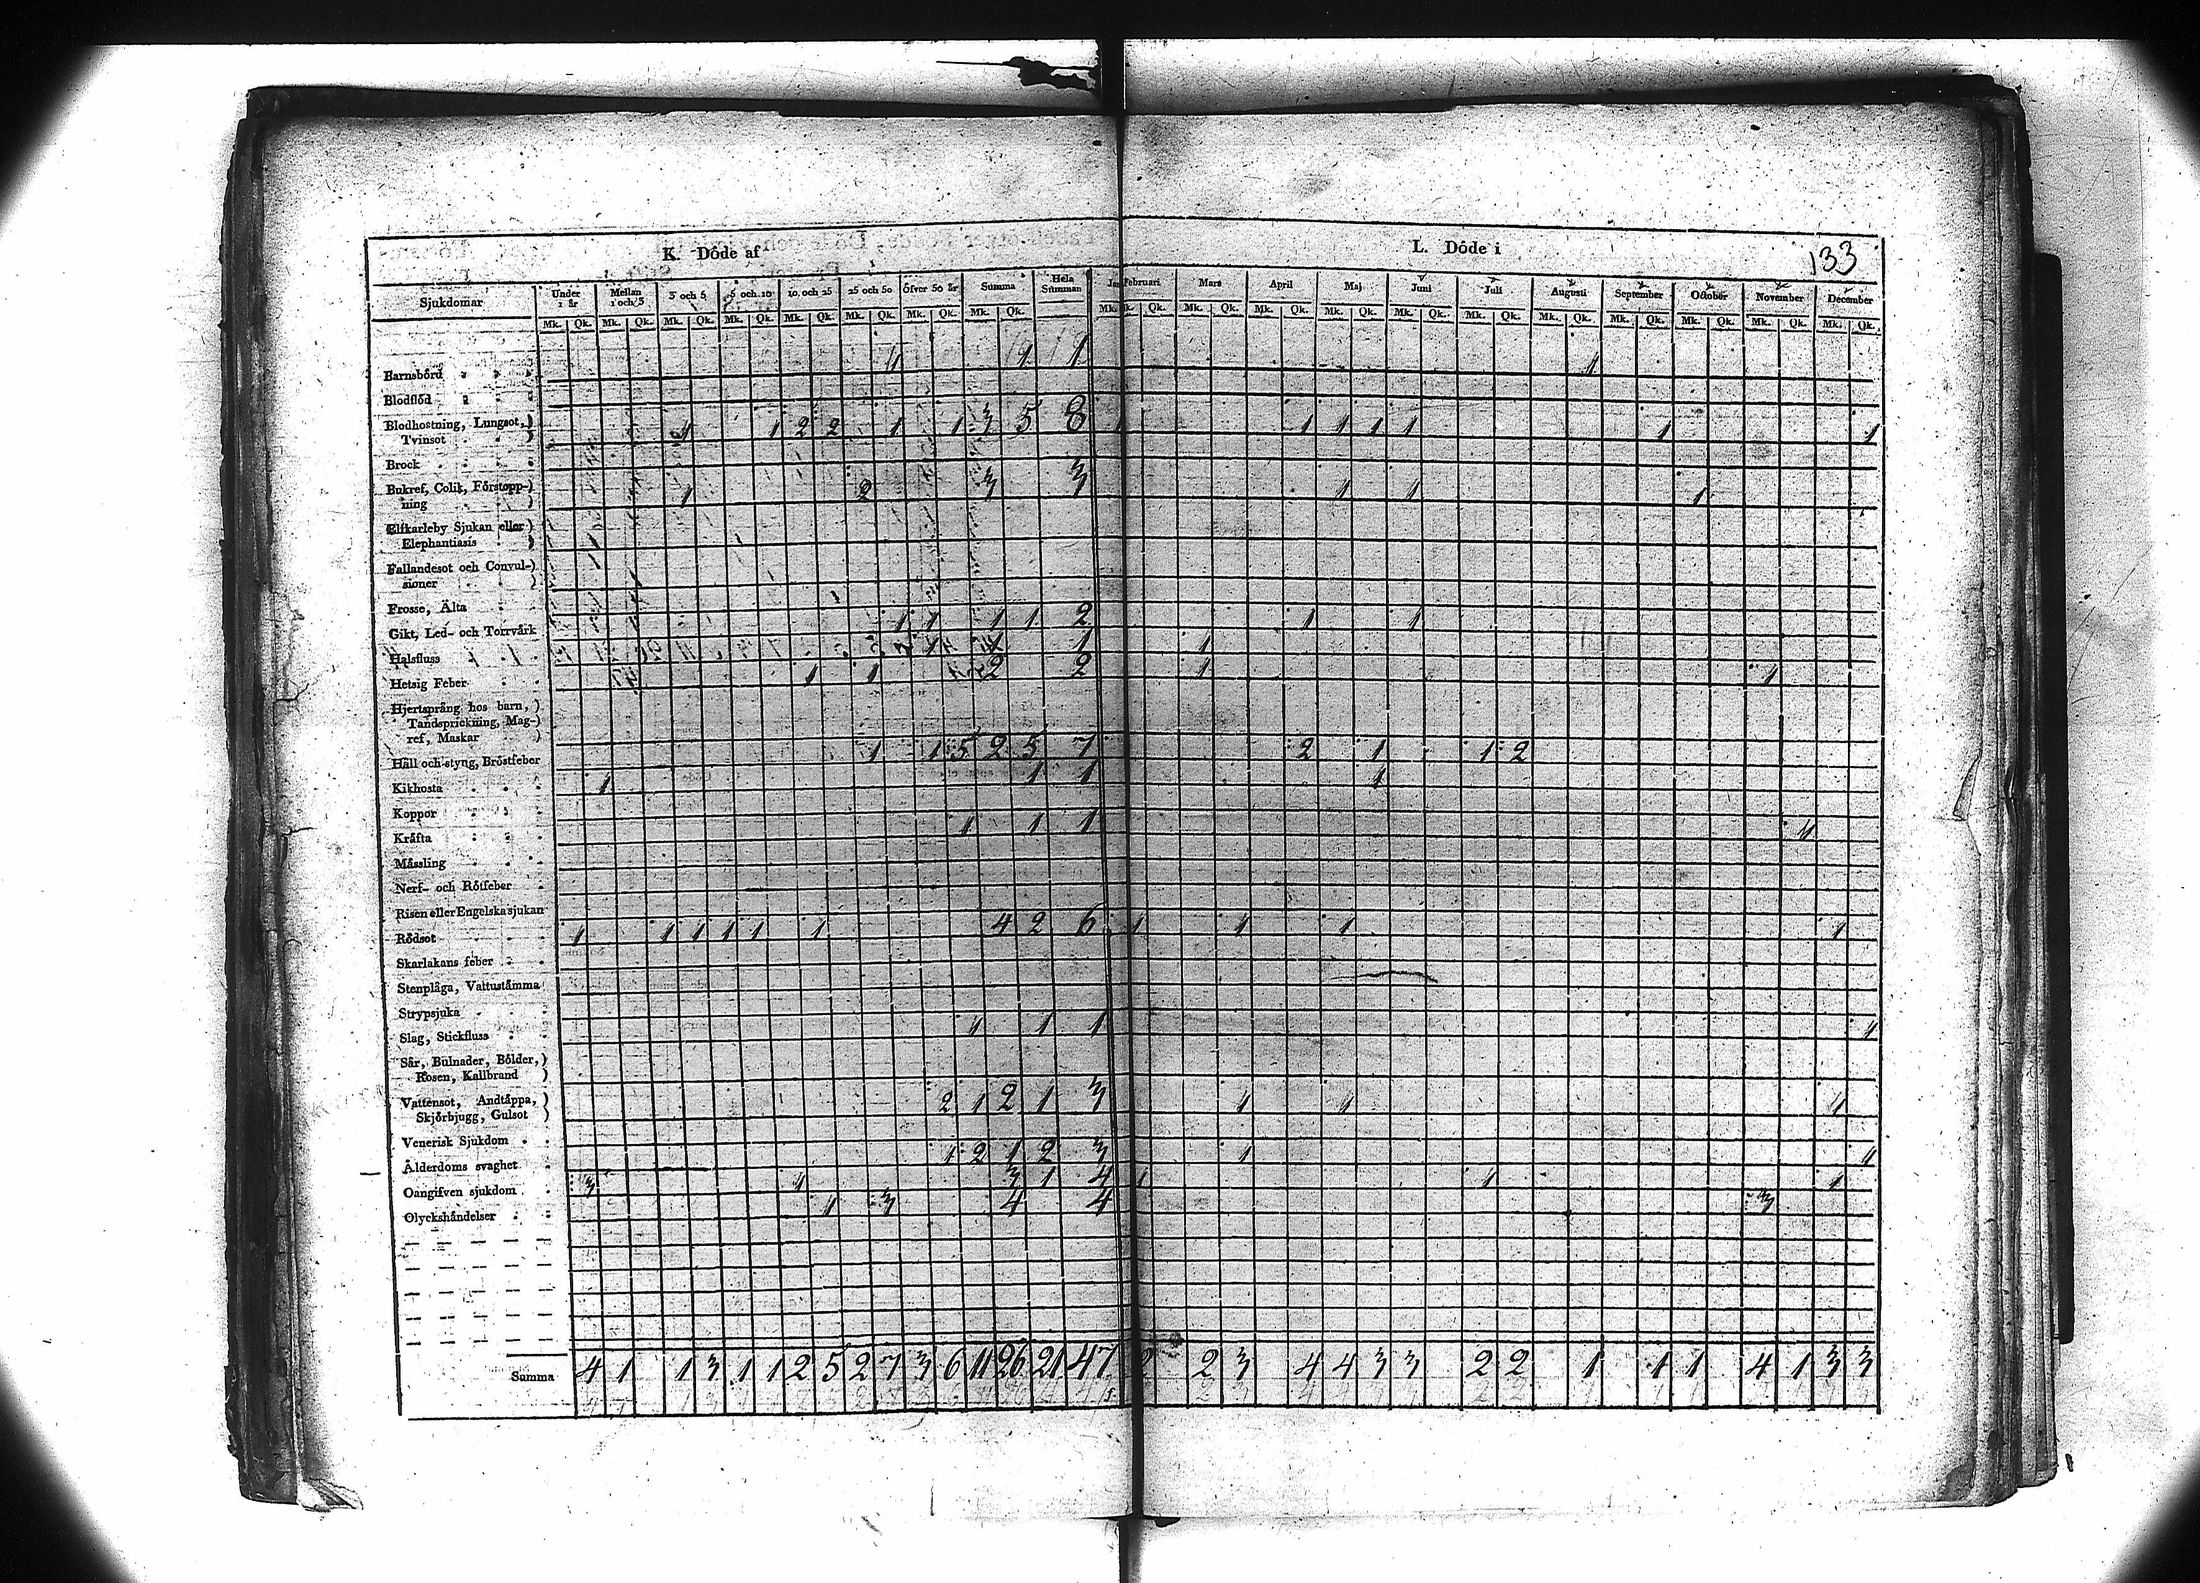 K. Döde af L. Döde i 133
Sjukdomar Under 1 år Mellan 1 och 3 3 och 5 5 och 10 10 och 25 25 och 50 Öfver 50 år Summa Hela Summan Februari Mars April Maj Juni Juli Augusti September October November December
Mk. Qk. Mk. Qk. Mk. Qk. Mk. Qk. Mk. Qk. Mk. Qk. Mk. Qk. Mk. Qk. Mk. Qk. Mk. Qk. Mk. Qk. Mk. Qk. Mk. Qk. Mk. Qk. Mk. Qk. Mk. Qk. Mk. Qk. Mk. Qk. Mk. Qk.
Barnsbörd 1 1 1 1
Blodflöd
Blodhostning, Lungsot,)
Tvinsot ) 1 1 2 2 1 1 3 5 8 1 1 1 1 1 1
Brock
Bukref, Colik, Förstopp-)
ning ) 1 2 3 3 1 1 1
Elfkarleby Sjukan eller)
Elephantiasis )
Fallandesot och Convul-)
sioner )
Frosse, Älta
Gikt, Led- och Torrvärk 1 1 1 1 2 1 1
Halsfluss 1 1 1 1
Hetsig Feber 1 1 2 2 1 1
Hjertsprång hos barn, )
Tandsprickning, Mag-)
ref, Maskar )
Håll och styng, Bröstfeber 1 1 5 2 5 7 2 1 1 2
Kikhosta 1 1 1 1
Koppor
Kräfta 1 1 1 1
Mässling
Nerf- och Rötfeber
Risen eller Engelska sjukan
Rödsot 1 1 1 1 1 1 4 2 6 1 1 1 1
Skarlakans feber
Stenplåga, Vattustämma
Strypsjuka
Slag, Stickfluss 1 1 1 1
Sår, Bulnader, Bölder, )
Rosen, Kallbrand )
Vattensot, Andtäppa, )
Skjörbjugg, Gulsot ) 2 1 2 1 3 1 1 1
Venerisk Sjukdom
Ålderdoms svaghet 1 2 1 2 3 1 1
Oangifven sjukdom 3 1 3 1 4 1 1 1
Olyckshändelser 1 3 4 4 3
Summa 4 1 1 3 1 1 2 5 2 7 3 6 11 26 21 47 2 2 3 4 4 3 3 2 2 1 1 1 4 1 3 3